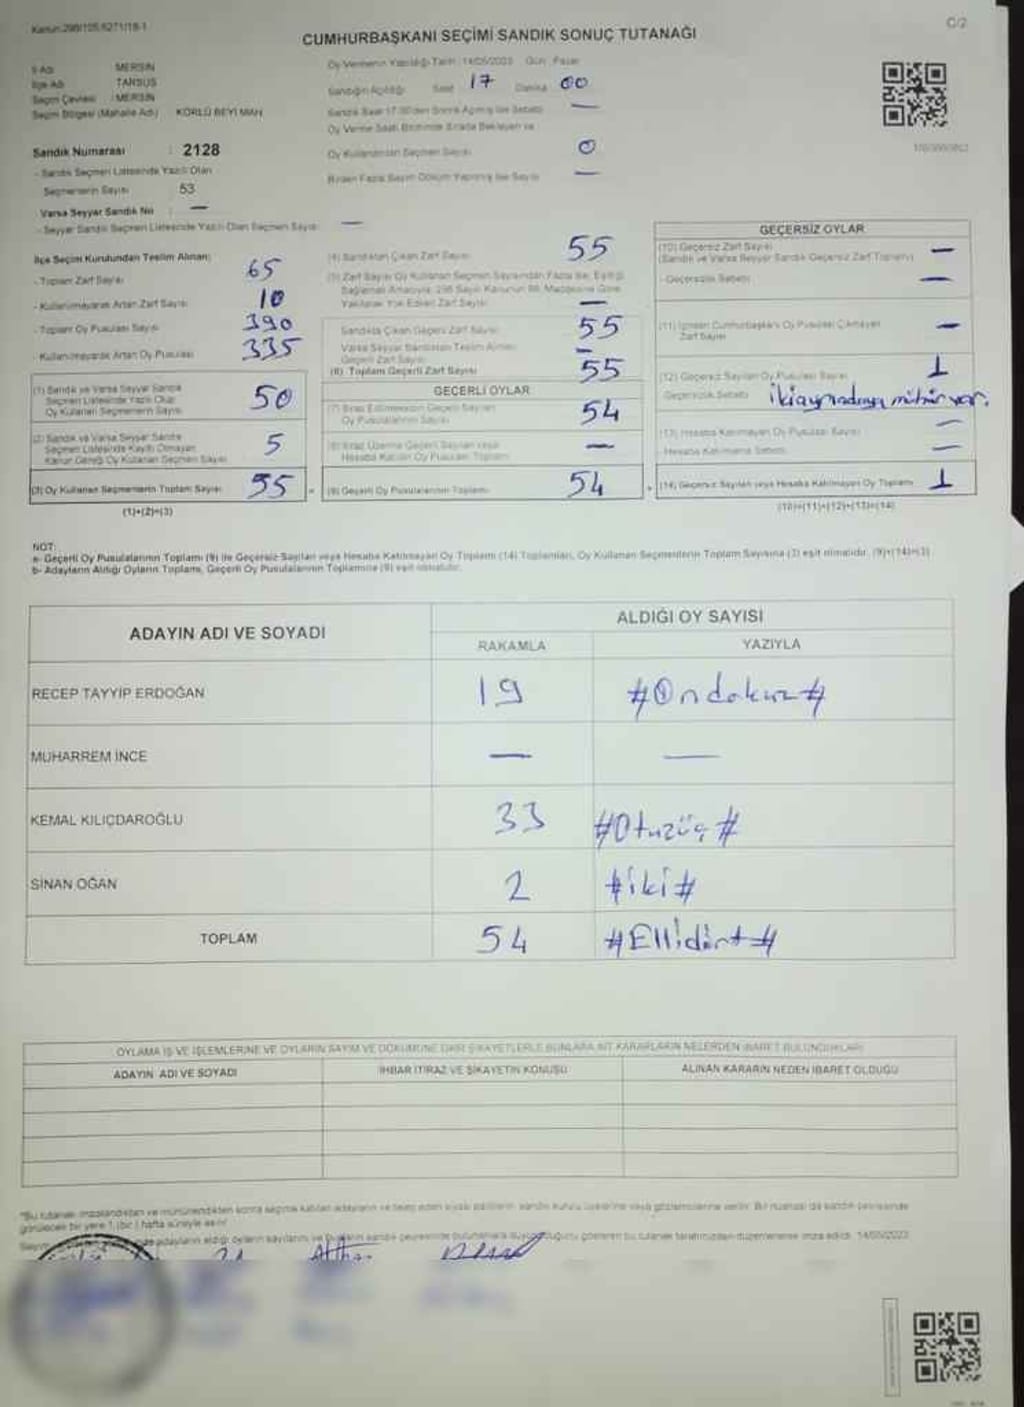 Kanun:298/105,6271/18-1
C/2
CUMHURBAŞKANI SEÇİMİ SANDIK SONUÇ TUTANAĞI
İl Adı : MERSİN
İlçe Adı : TARSUS
Seçim Çevresi : MERSİN
Seçim Bölgesi (Mahalle Adı) : KÖRLÜ BEYİ MAH.
Sandık Numarası : 2128
- Sandık Seçmen Listesinde Yazılı Olan
Seçmenlerin Sayısı 53
Varsa Seyyar Sandık No : —
- Seyyar Sandık Seçmen Listesinde Yazılı Olan Seçmen Sayısı —
Oy Vermenin Yapıldığı Tarih : 14/05/2023 Gün : Pazar
Sandığın Açıldığı Saat 17 Dakika 00
Sandık Saat 17.00'den Sonra Açılmış İse Sebebi —
Oy Verme Saati Bitiminde Sırada Bekleyen ve
Oy Kullandırılan Seçmen Sayısı 0
Birden Fazla Sayım Döküm Yapılmış İse Sayısı —
İlçe Seçim Kurulundan Teslim Alınan;
- Toplam Zarf Sayısı 65
- Kullanılmayarak Artan Zarf Sayısı 10
- Toplam Oy Pusulası Sayısı 390
- Kullanılmayarak Artan Oy Pusulası 335
(1) Sandık ve Varsa Seyyar Sandık
Seçmen Listesinde Yazılı Olup
Oy Kullanan Seçmenlerin Sayısı 50
(2) Sandık ve Varsa Seyyar Sandık
Seçmen Listesinde Kayıtlı Olmayan
Kanun Gereği Oy Kullanan Seçmen Sayısı 5
(3) Oy Kullanan Seçmenlerin Toplam Sayısı 55 =
(1)+(2)=(3)
(4) Sandıktan Çıkan Zarf Sayısı 55
(5) Zarf Sayısı Oy Kullanan Seçmen Sayısından Fazla İse, Eşitliği
Sağlamak Amacıyla, 298 Sayılı Kanunun 98. Maddesine Göre
Yakılarak Yok Edilen Zarf Sayısı —
Sandıkta Çıkan Geçerli Zarf Sayısı 55
Varsa Seyyar Sandıktan Teslim Alınan
Geçerli Zarf Sayısı —
(6) Toplam Geçerli Zarf Sayısı 55
GEÇERLİ OYLAR
(7) İtiraz Edilmeksizin Geçerli Sayılan
Oy Pusulalarının Sayısı 54
(8) İtiraz Üzerine Geçerli Sayılan veya
Hesaba Katılan Oy Pusulası Toplamı —
(9) Geçerli Oy Pusulalarının Toplamı 54
GEÇERSİZ OYLAR
(10) Geçersiz Zarf Sayısı —
(Sandık ve Varsa Seyyar Sandık Geçersiz Zarf Toplamı)
- Geçersizlik Sebebi —
(11) İçinden Cumhurbaşkanı Oy Pusulası Çıkmayan
Zarf Sayısı —
(12) Geçersiz Sayılan Oy Pusulası Sayısı 1
- Geçersizlik Sebebi iki ayrı adaya mühür var.
(13) Hesaba Katılmayan Oy Pusulası Sayısı —
- Hesaba Katılmama Sebebi —
(14) Geçersiz Sayılan veya Hesaba Katılmayan Oy Toplamı 1
(10)+(11)+(12)+(13)=(14)
NOT:
a- Geçerli Oy Pusulalarının Toplamı (9) ile Geçersiz Sayılan veya Hesaba Katılmayan Oy Toplamı (14) Toplamları, Oy Kullanan Seçmenlerin Toplam Sayısına (3) eşit olmalıdır. (9)+(14)=(3)
b- Adayların Aldığı Oyların Toplamı, Geçerli Oy Pusulalarının Toplamına (9) eşit olmalıdır.
ADAYIN ADI VE SOYADI
ALDIĞI OY SAYISI
RAKAMLA YAZIYLA
RECEP TAYYİP ERDOĞAN 19 #Ondokuz#
MUHARREM İNCE — —
KEMAL KILIÇDAROĞLU 33 #Otuzüç#
SİNAN OĞAN 2 #iki#
TOPLAM 54 #Ellidört#
OYLAMA İŞ VE İŞLEMLERİNE VE OYLARIN SAYIM VE DÖKÜMÜNE DAİR ŞİKAYETLERLE BUNLARA AİT KARARLARIN NELERDEN İBARET BULUNDUKLARI
ADAYIN ADI VE SOYADI İHBAR İTİRAZ VE ŞİKAYETİN KONUSU ALINAN KARARIN NEDEN İBARET OLDUĞU
*Bu tutanak imzalandıktan ve mühürlendikten sonra seçime katılan adayların ve talep eden siyasi partilerin sandık kurulu üyelerine veya gözlemcilerine verilir. Bir nüshası da sandık çevresinde
görülecek bir yere 1 (bir) hafta süreyle asılır.
adayların aldığı oyların sayılarını ve bunların sandık çevresinde gösteren bu tutanak tarafımızdan düzenlenerek imza edildi. 14/05/2023